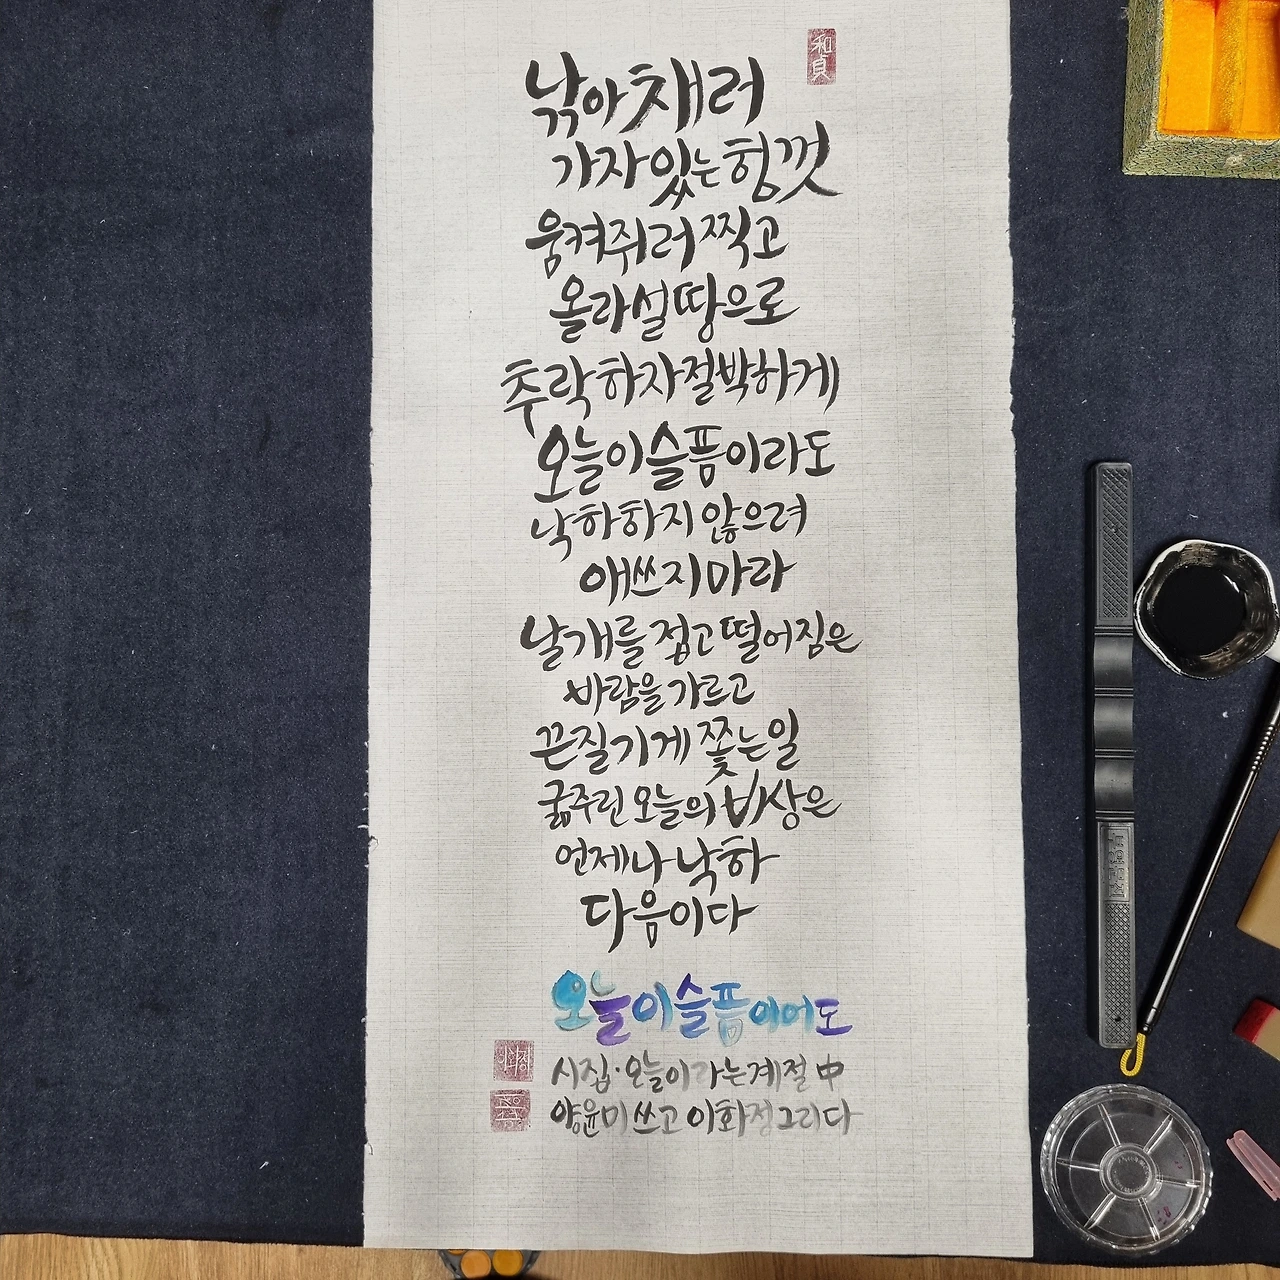 和貞
낚아채러
가자 있는 힘껏
움켜쥐러 찍고
올라설 땅으로
추락하자 절박하게
오늘이 슬픔이라도
낙하하지 않으려
애쓰지 마라
날개를 접고 떨어짐은
바람을 가르고
끈질기게 쫓는 일
굶주린 오늘의 비상은
언제나 낙하
다음이다
오늘이 슬픔이어도
시집·오늘이라는 계절 中
양윤미 쓰고 이화정 그리다